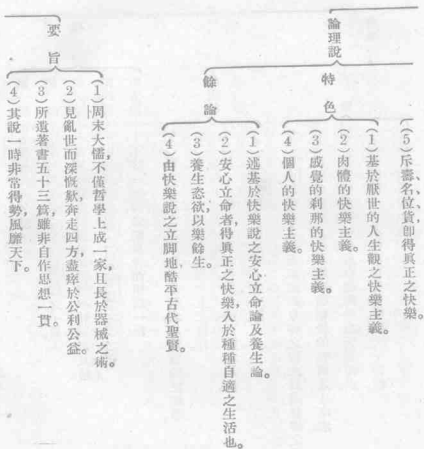 論理說
(5)斥壽、名、位、貨即得眞正之快樂。
特色
(1)基於厭世的人生觀之快樂主義。
(2)肉體的快樂主義。
(3)感覺的刹那的快樂主義。
(4)個人的快樂主義。
餘論
(1)述基於快樂說之安心立命論及養生論。
(2)安心立命者得眞正之快樂、入於種種自適之生活也。
(3)養生恣欲以樂餘生。
(4)由快樂說之立脚地酷平古代聖賢。
要旨
(1)周末大儒、不僅哲學上成一家、且長於器械之術。
(2)見亂世而深慨歎、奔走四方、盡瘁於公利公益。
(3)所遺著書五十三篇、雖非自作思想一貫。
(4)其說一時非常得勢、風靡天下。